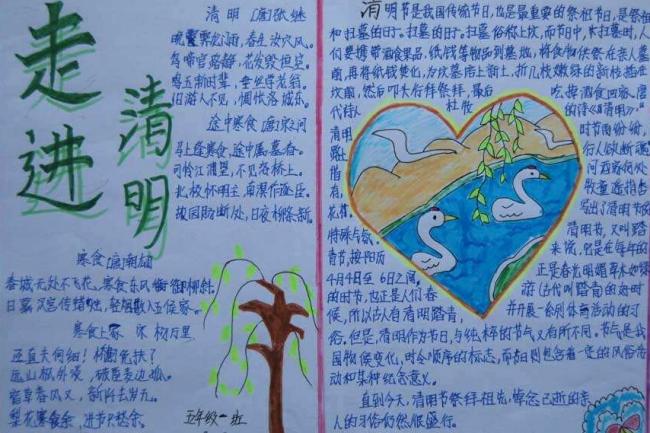 走进
清明
清明 [唐]张继
耿耿霁
春在
鸟啼官路静，花发毁垣空。
鸣玉朝时辈，垂丝学老翁。
旧游人不见，惆怅洛城东。
途中寒食 [唐]宋之问
马上逢寒食，途中属暮春。
可怜江浦望，不见洛桥人。
北极怀明主，南溟作逐臣。
故园肠断处，日夜柳条新。
寒食 [唐]韩翃
春城无处不飞花，寒食东风御柳斜。
日暮汉宫传蜡烛，轻烟散入五侯家。
寒食上冢 宋 杨万里
迳直夫何细！桥危可免扶？
远山枫外淡，破屋麦边孤。
宿草春风又，新阡去岁无。
梨花寒食
五年级一班
清明节是我国传统节日，也是最重要的祭祖节日，是祭祖
和扫墓的日子。扫墓俗称上坟，
们要携带酒食果品、纸钱等物品到墓地，将食物供祭在亲人墓
前，再将纸钱焚化，为坟墓培上新土，折几枝嫩绿的新枝插在
坟前，然后叩头行礼祭拜，最后
吃掉酒食回家。唐
代诗人
杜牧
的诗《清明》：“
清明
时节雨纷纷，
路上
行人欲断魂。
借
问酒家何处
有
牧童遥指杏
花村。
写出了清明节的
特殊气氛。
清明节，又叫踏
青节，按阳历
在每年的
4月4日至6日之间，
正是春光明媚草木
的时节，也正是人们春
游（古代叫踏青）的好时
候，所以古人有清明踏青，
并开展一系列体育活动的习
俗。但是，清明作为节日，与纯粹的节气又有所不同。节气是我
国物候变化、时令顺序的标志，而节日则包含着一定的风俗活
动和某种纪念意义。
直到今天，清明节祭拜祖先，悼念已逝的亲
人的习俗仍然很盛行。